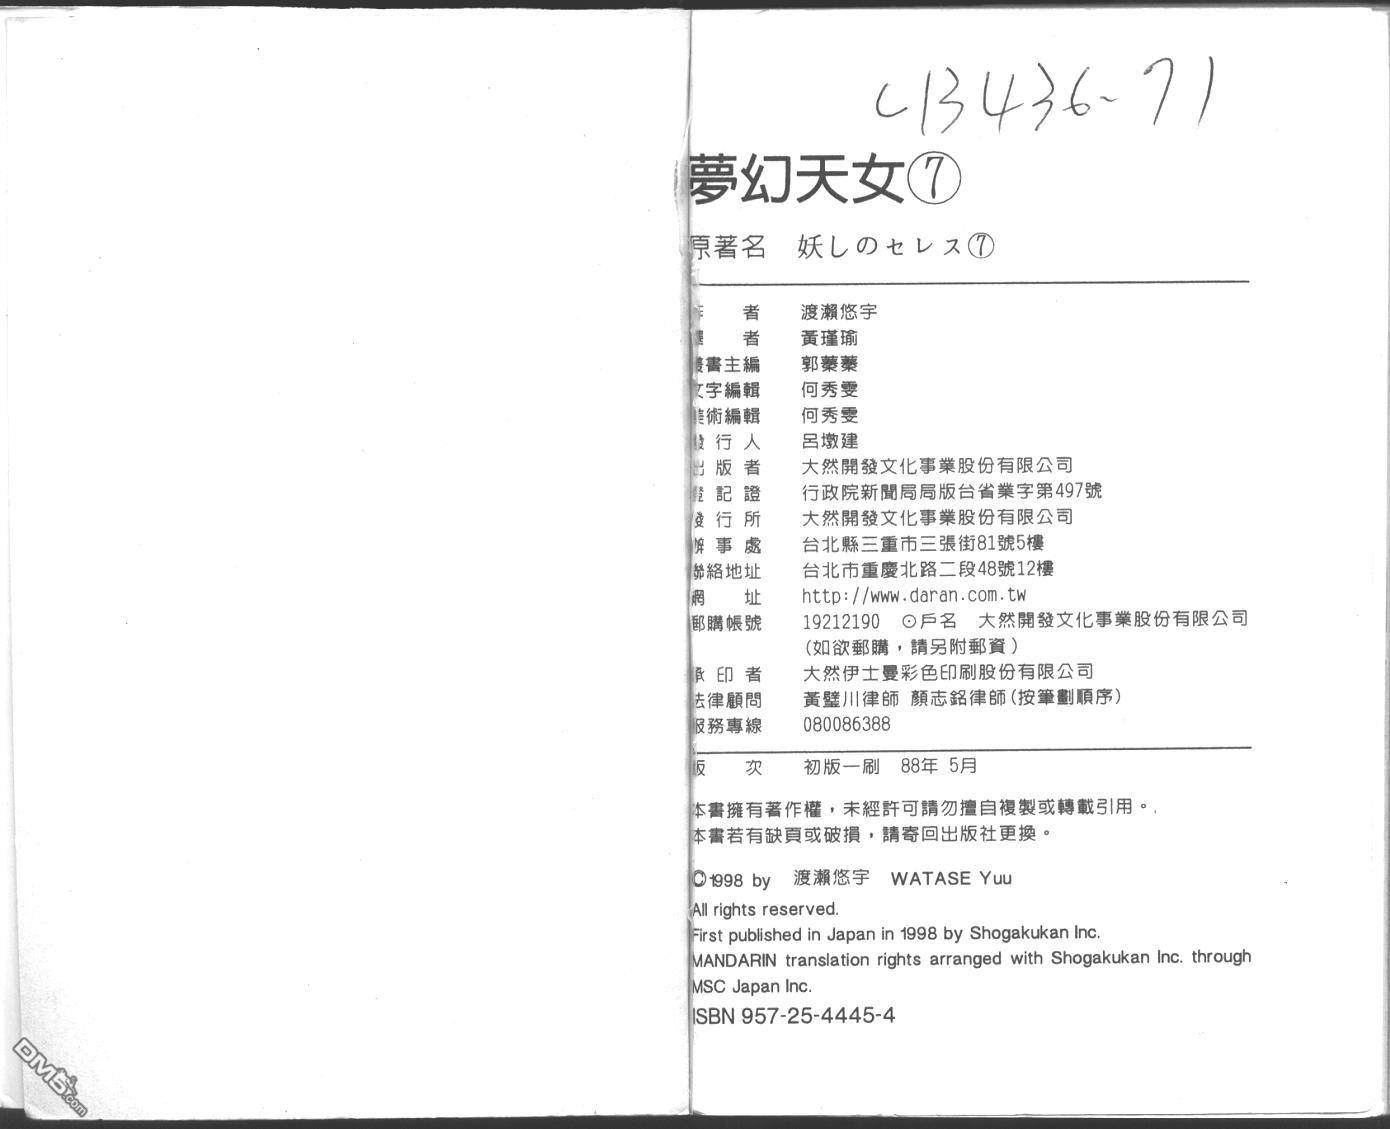 C13436-71
夢幻天女⑦
原著名 妖しのセレス⑦
作者 渡瀨悠宇
譯者 黃瑾瑜
叢書主編 郭蓁蓁
文字編輯 何秀雯
美術編輯 何秀雯
發行人 呂墩建
出版者 大然開發文化事業股份有限公司
登記證 行政院新聞局局版台省業字第497號
發行所 大然開發文化事業股份有限公司
辦事處 台北縣三重市三張街81號5樓
聯絡地址 台北市重慶北路二段48號12樓
網址 http://www.daran.com.tw
郵購帳號 19212190 ⊙戶名 大然開發文化事業股份有限公司
(如欲郵購，請另附郵資)
承印者 大然伊士曼彩色印刷股份有限公司
法律顧問 黃璧川律師 顏志銘律師(按筆劃順序)
服務專線 080086388
版次 初版一刷 88年 5月
本書擁有著作權，未經許可請勿擅自複製或轉載引用。
本書若有缺頁或破損，請寄回出版社更換。
©1998 by 渡瀨悠宇 WATASE Yuu
All rights reserved.
First published in Japan in 1998 by Shogakukan Inc.
MANDARIN translation rights arranged with Shogakukan Inc. through
MSC Japan Inc.
ISBN 957-25-4445-4
DM5.com